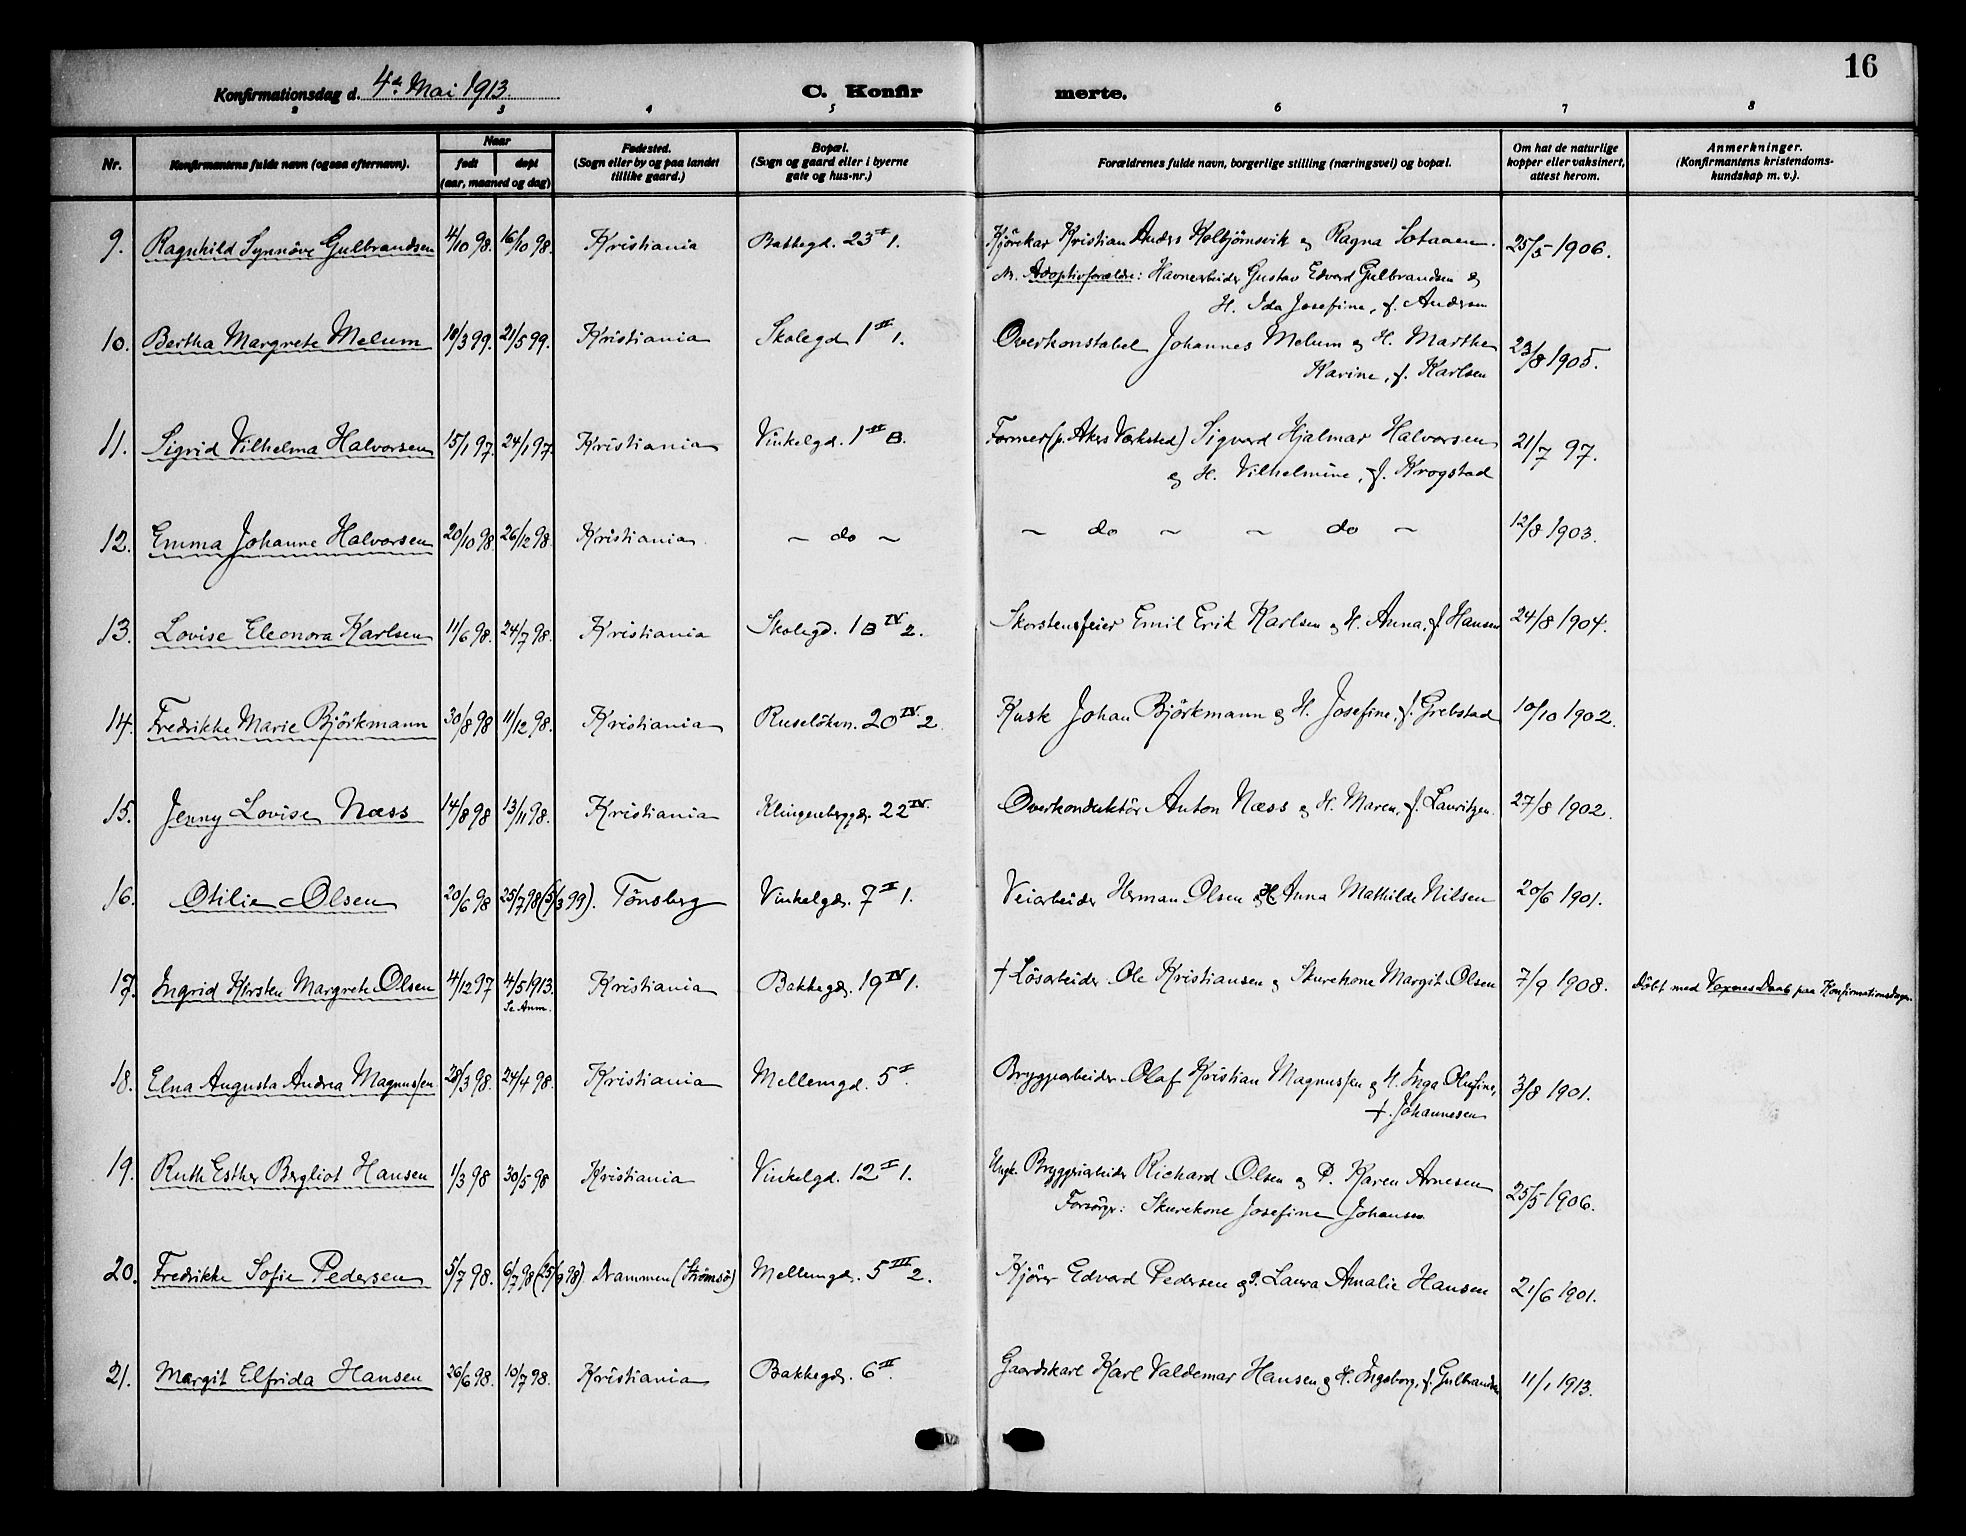 16
Konfirmationsdag d. 4de Mai 1913.
C. Konfirmerte.
2 3 4 5 6 7 8
Nr.
Konfirmantens fulde navn (ogsaa efternavn).
Naar
født
døpt
(aar, maaned og dag)
Fødested.
(Sogn eller by og paa landet
tillike gaard.)
Bopæl.
(Sogn og gaard eller i byerne
gate og hus-nr.)
Forældrenes fulde navn, borgerlige stilling (næringsvei) og bopæl.
Om hat de naturlige
kopper eller vaksinert,
attest herom.
Anmerkninger.
(Konfirmantens kristendoms-
kundskap m. v.).
9. Ragnhild Synnöve Gulbrandsen 4/10 98. 16/10 98. Kristiania Bakkegd. 23 II 1. Kjörekar Kristian Anders Kolbjörnsvik og Ragna 25/5 1906.
Adoptivforældre: Havnearbeider Gustav Edvard Gulbrandsen &
H. Ida Josefine, f. Andersen
10. Bertha Margrete Melum 18/3 99. 21/5 99. Kristiania Skolegd. 1 II 1. Overkonstabel Johannes Melum og H. Marthe 23/8 1905.
Karine, f. Karlsen
11. Sigrid Vilhelma Halvorsen 15/1 97. 24/1 97. Kristiania Vinkelgd. 1 II B. Former (p. Akers Værksted) Sigvard Hjalmar Halvorsen 21/7 97.
og H. Vilhelmine, f. Krogstad
12. Emma Johanne Halvorsen 20/10 98. 26/12 98. Kristiania. ~ do ~ ~ do ~ ~ do ~ 12/8 1903.
13. Lovise Eleonora Karlsen 11/6 98. 24/7 98. Kristiania Skolegd. 1 B IV 2. Skorstensfeier Emil Erik Karlsen og H. Anna, f. Hansen 24/8 1904.
14. Fredrikke Marie Björkmann 30/8 98 11/12 98. Kristiania Ruselökvn. 20 IV. 2. Kusk Johan Björkmann og H. Josefine, f. Grebstad 10/10 1902.
15. Jenny Lovise Næss 14/8 98 13/11 98. Kristiania Klingenberggd. 22 IV. Overkonduktör Anton Næss og H. Maren, f. Lauritzen. 27/8 1902.
16. Otilie Olsen 20/6 98 25/7 98 (5/3 99). Tönsberg Vinkelgd. 7 II 1. Veiarbeider Herman Olsen og H. Anna Mathilde Nilsen 20/6 1901.
17. Ingrid Kirsten Margrete Olsen 4/12 97 4/5 1913. Kristiania Bakkegd. 19 IV 1. † Lösarbeider Ole Kristiansen og Skurekone Margit Olsen 7/9 1908. Döbt med Voxnes Daab paa Konfirmationsdagen.
Se Anm.
18. Elna Augusta Andrea Magnussen 28/3 98. 24/4 98. Kristiania Mellemgd. 5 I. Bryggearbeider Olaf Kristian Magnussen og H. Inga Olufine, 3/8 1901.
f. Johannesen
19. Ruth Esther Bergliot Hansen 1/3 98 30/5 98 Kristiania Vinkelgd. 12 II 1. Ungk. Bryggeriarbeider Richard Olsen og P. Karen Arnesen 25/5 1906.
Forsörger: Skurekone Josefine Johansen
20. Fredrikke Sofie Pedersen 5/7 98. 6/7 98 (25/9 98). Drammen (Strömsö) Mellemgd. 5 III 2. Kjörer Edvard Pedersen og Laura Amalie Hansen 21/6 1901.
21. Margit Elfrida Hansen 26/6 98. 10/7 98. Kristiania Bakkegd. 6 II. Gaardskarl Karl Valdemar Hansen og H. Ingeborg, f. Gulbrandsen 11/1 1913.